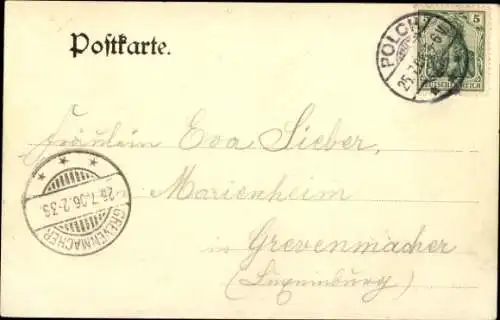 Postkarte.
POLCH
5
DEUTSCHES REICH
Fräulein Eva Sieber,
Marienheim
in Grevenmacher
(Luxemburg)
26.7.06.2-3S.
GREVENMACHER